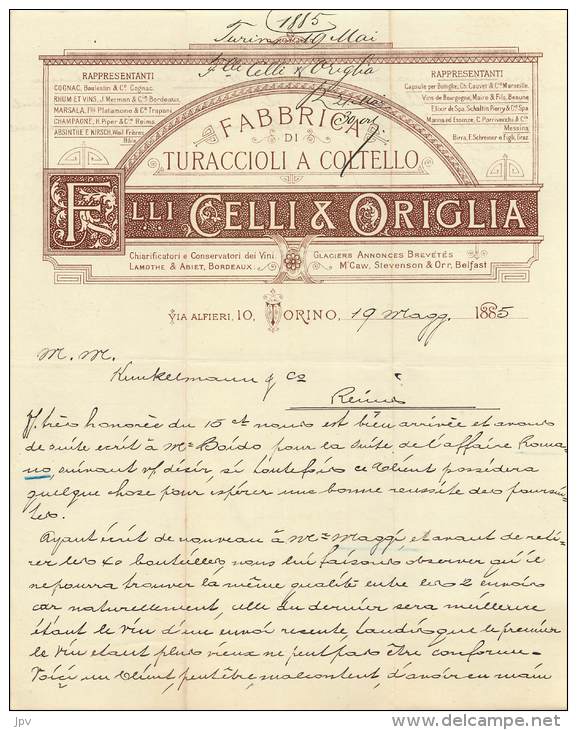 1885
Turin 19 Mai
Flli Celli & Origlia
FABBRICA
DI
TURACCIOLI A COLTELLO
RAPPRESENTANTI
COGNAC, Boulestin & Cº. Cognac.
RHUM ET VINS, J. Merman & Cº. Bordeaux.
MARSALA, Flli Platamone & Cº. Trapani
CHAMPAGNE, H. Piper & Cº. Reims
ABSINTHE E KIRSCH, Weil Frères
RAPPRESENTANTI
Capsule per Bottiglie, Ch. Cauvet & Cº. Marseille.
Vins de Bourgogne, Maire & Fils, Beaune
Elixir de Spa, Schaltin Pierry & Cº. Spa
Messina
Birra, F. Schreiner e Figli, Graz
FLLI CELLI & ORIGLIA
Chiarificatori e Conservatori dei Vini
LAMOTHE & ABIET, BORDEAUX.
GLACIERS ANNONCES BREVÉTÉS
Mc Caw, Stevenson & Orr, Belfast
VIA ALFIERI, 10, TORINO, 19 Magg. 1885
M. M.
Kunkelmann & Co
Reims
V. très honorée du 15 ct nous est bien arrivée et avons
de suite ecrit à Mr Boido pour la suite de l'affaire Roma-
no, suivant v/ désir, si toutefois ce client possédera
quelque chose pour espérer une bonne reussite des poursui-
tes.
Ayant écrit de nouveau à Mr Maggi, et avant de reti-
rer les 40 bouteilles nous lui faisons observer qu'il
ne pourra trouver la même qualité entre les 2 envois
car naturellement, elle du dernier sera meilleure
étant le vin d'une envoi recente, tandis que le premier
le vin etant plus vieux ne peut pas être conforme -
Voiçi un client, peut être, malcontent, d'avoir en main
jpv
www.delcampe.net